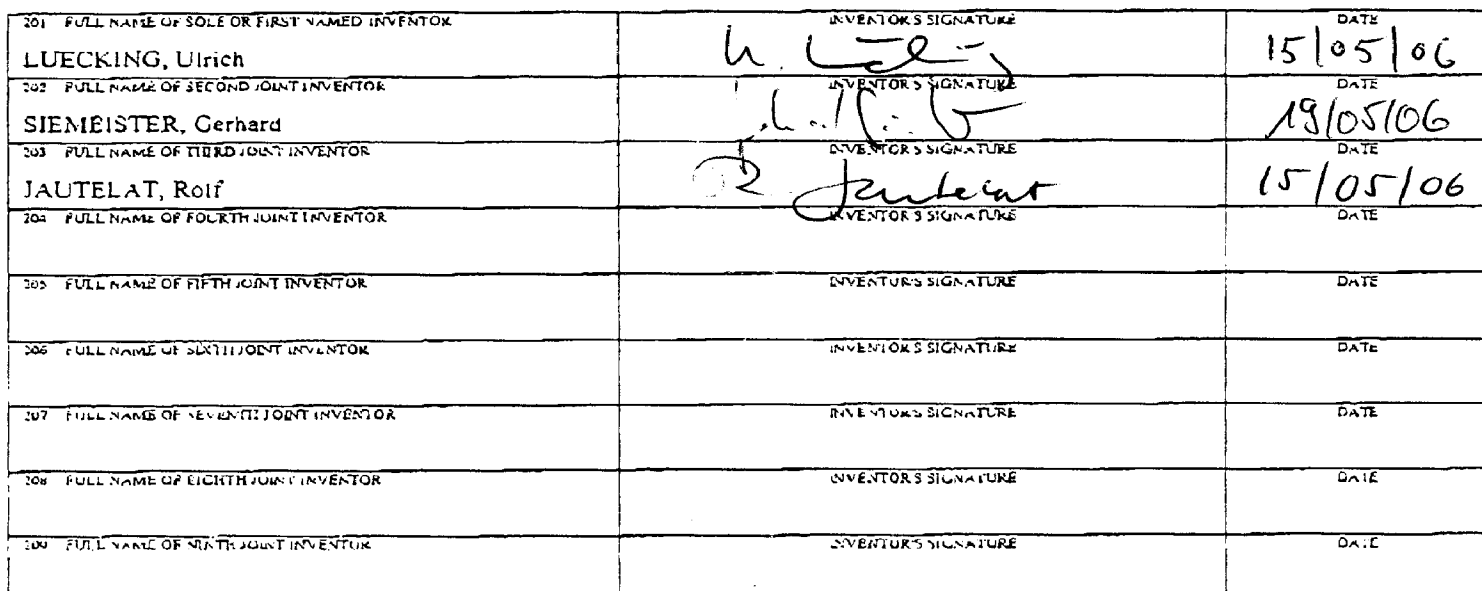 201 FULL NAME OF SOLE OR FIRST NAMED INVENTOR INVENTOR'S SIGNATURE DATE
LUECKING, Ulrich 15/05/06
202 FULL NAME OF SECOND JOINT INVENTOR INVENTOR'S SIGNATURE DATE
SIEMEISTER, Gerhard 19/05/06
203 FULL NAME OF THIRD JOINT INVENTOR INVENTOR'S SIGNATURE DATE
JAUTELAT, Rolf R Jautelat 15/05/06
204 FULL NAME OF FOURTH JOINT INVENTOR INVENTOR'S SIGNATURE DATE
205 FULL NAME OF FIFTH JOINT INVENTOR INVENTOR'S SIGNATURE DATE
206 FULL NAME OF SIXTH JOINT INVENTOR INVENTOR'S SIGNATURE DATE
207 FULL NAME OF SEVENTH JOINT INVENTOR INVENTOR'S SIGNATURE DATE
208 FULL NAME OF EIGHTH JOINT INVENTOR INVENTOR'S SIGNATURE DATE
209 FULL NAME OF NINTH JOINT INVENTOR INVENTOR'S SIGNATURE DATE